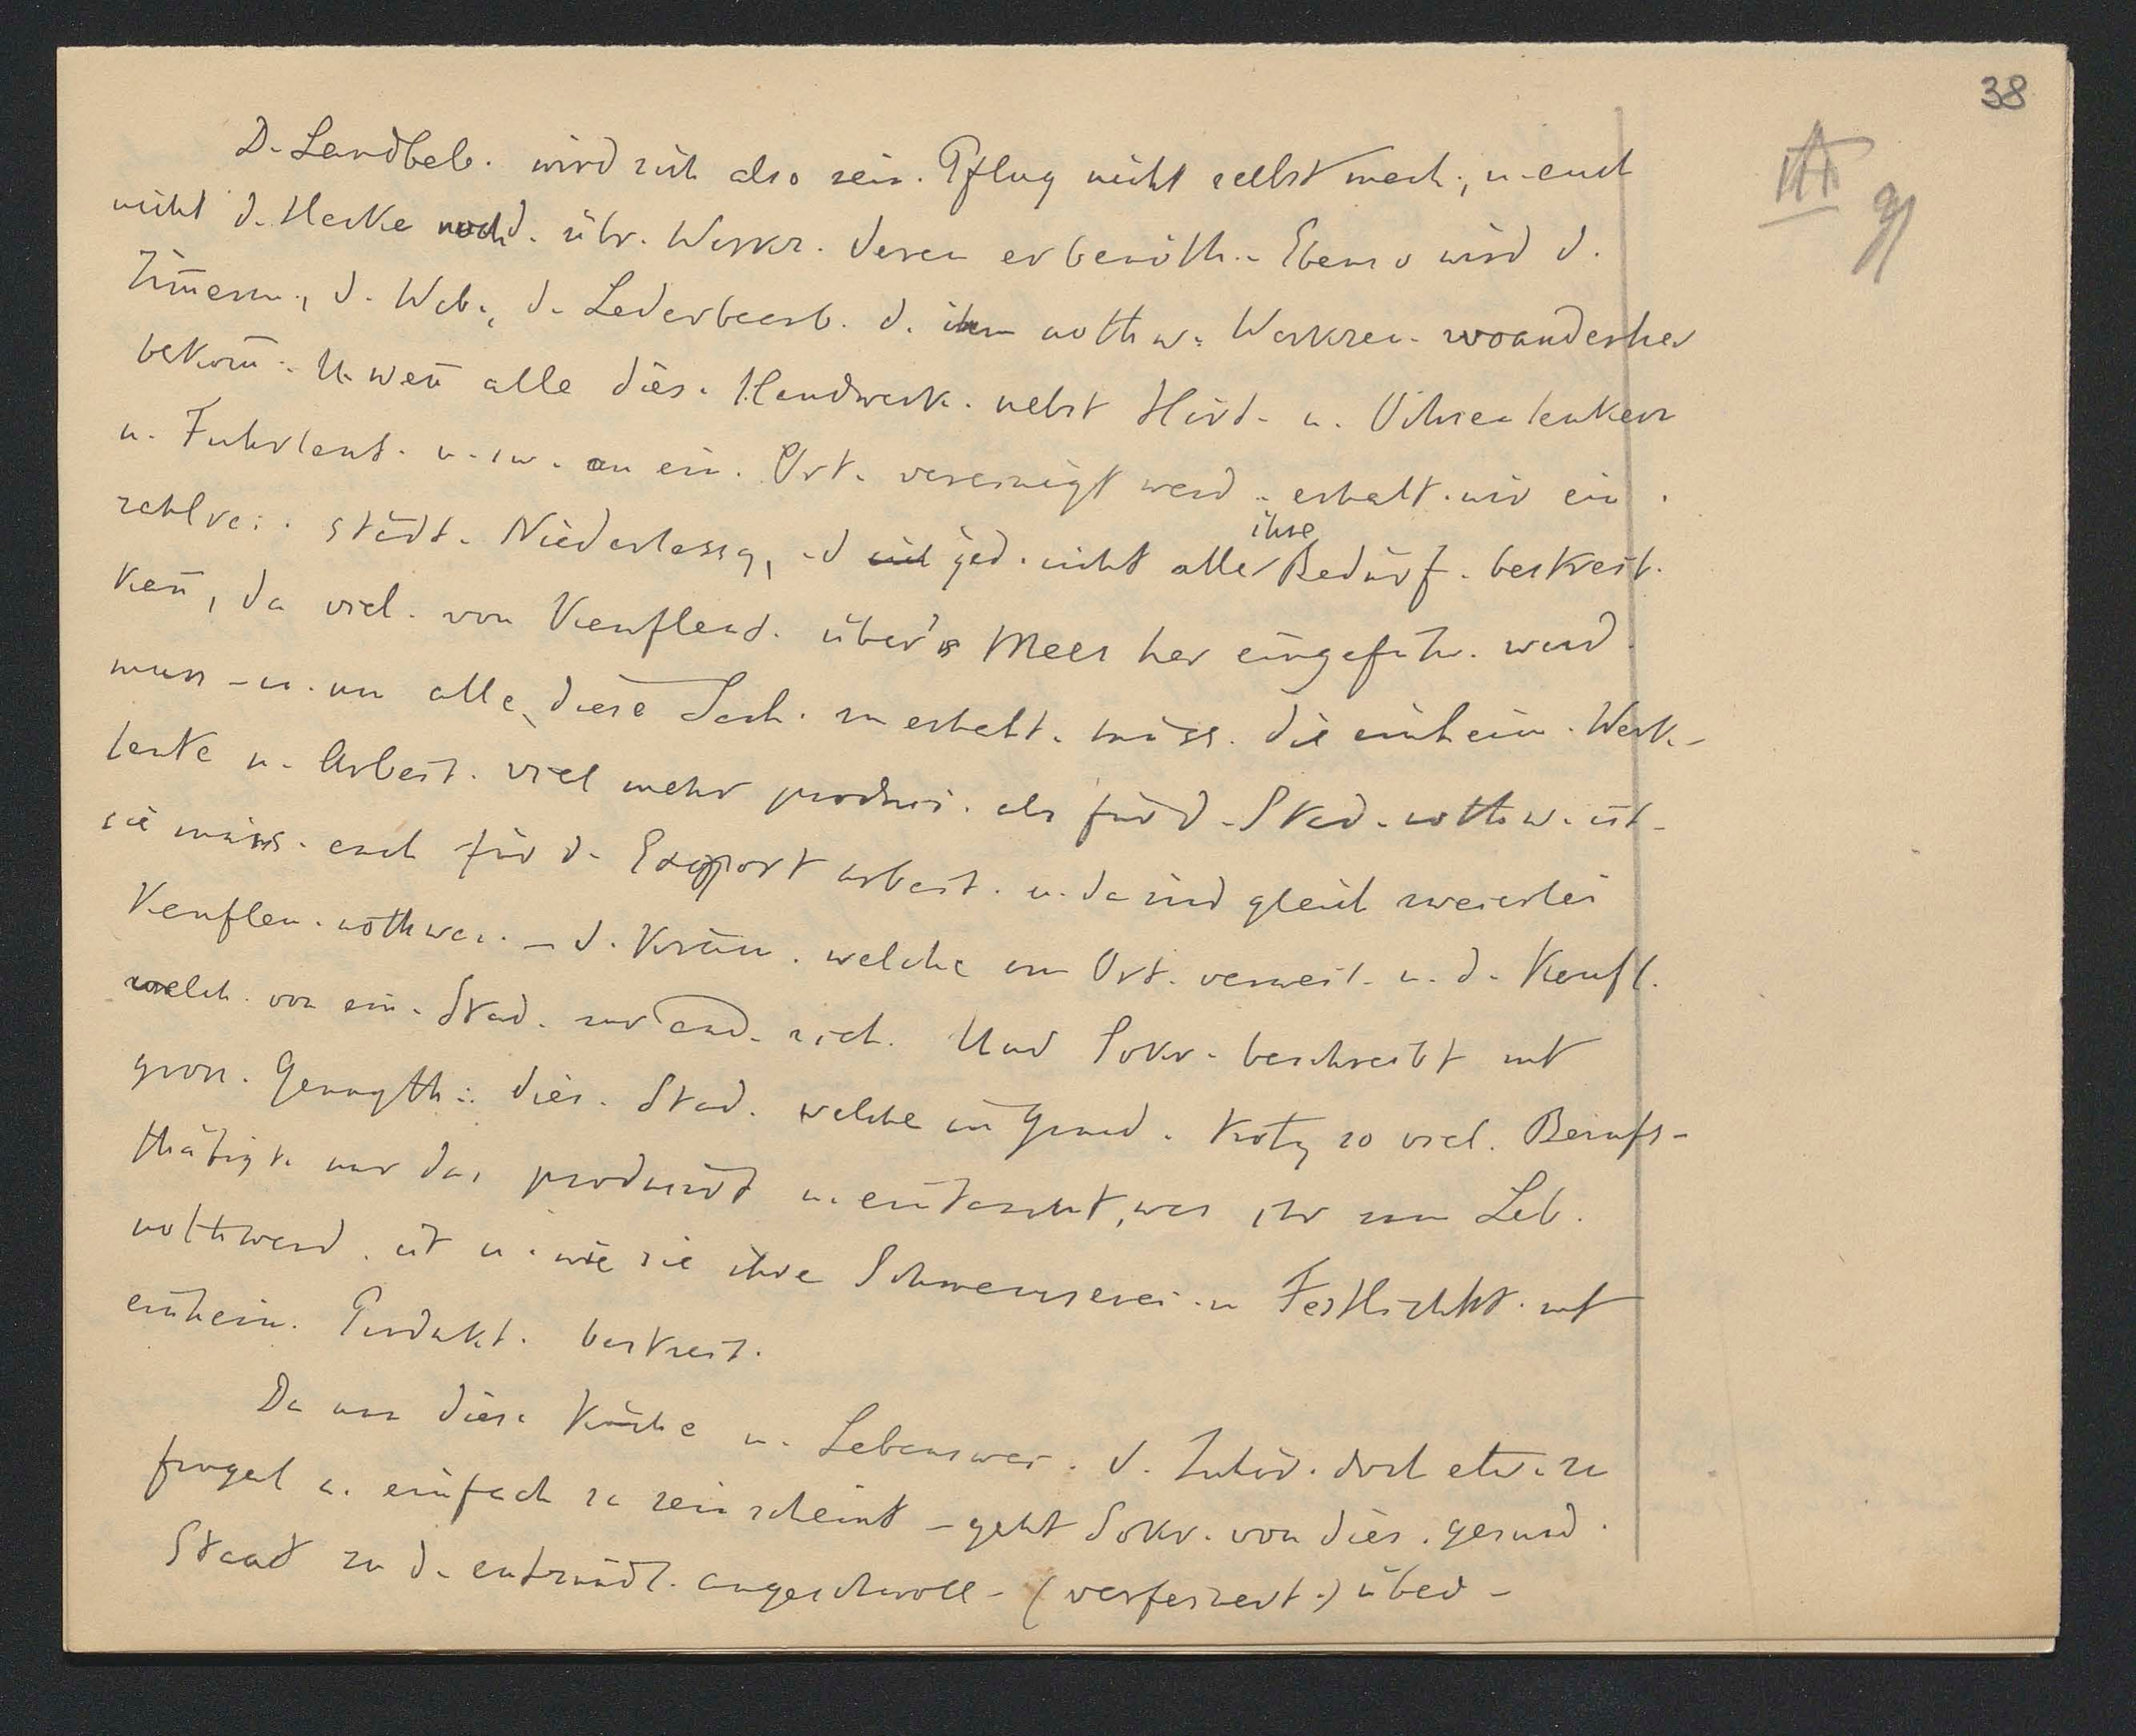 38
D. Landbeb. wird sich also sein. Pflug nicht selbst mach., u. auch
nicht d. Hacke noch d. übr. Werkz. deren er benöth. Ebenso wird d.
Zim̄erm., d. Web., d. Lederbearb. d. ihm nothw. Werkzeu. woandersher
bekom̄. U. wen̄ alle dies. Handwerk. nebst Hirt. u. Ochsenlenkern
u. Fuhrleut. u.s.w. an ein. Ort. vereinigt werd. erhalt. wir ein.
zahlrei. städt. Niederlassg, d jed. nicht alle ihre Bedürf. bestreit.
kan̄, da viel. von Kaufleut. über's Meer her eingeführ. werd.
muss – u. um alle diese Sach. zu erhalt. müss. die einheim. Werk-
leute u. Arbeit. viel mehr produzi. als für d. Stad. nothw. ist –
sie müss. auch für d. Export arbeit. u. da sind gleich zweierlei
Kaufleu. nothwen. – d. Kräm. welche am Ort. verweil. u. d. Kaufl.
welch. von ein. Stad. zur and. zieh. Und Sokr. beschreibt mit
gross. Genugth. dies. Stad. welche im Grund. trotz so viel. Berufs-
thätigk. nur das produzirt u. eintauscht, was ihr zum Leb.
nothwend. ist u. wie sie ihre Schwausereien u. Festlichkt. mit
einheim. Produkt. bestreit.
Da nun diese Küche u. Lebenswei. d. Zuhör. doch etw. zu
frugal u. einfach zu sein scheint – geht Sokr. von dies. gesund.
Staat zu d. entzündl. angeschwoll. (verfeinert.) über –